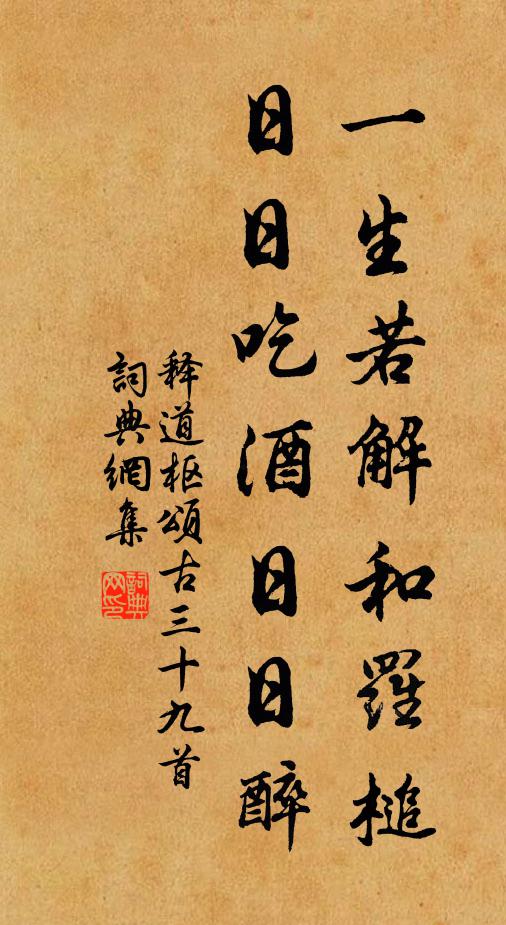 一生若解和羅槌
日日吃酒日日醉
释道枢頌古三十九首
詞典網集
詞典
网印